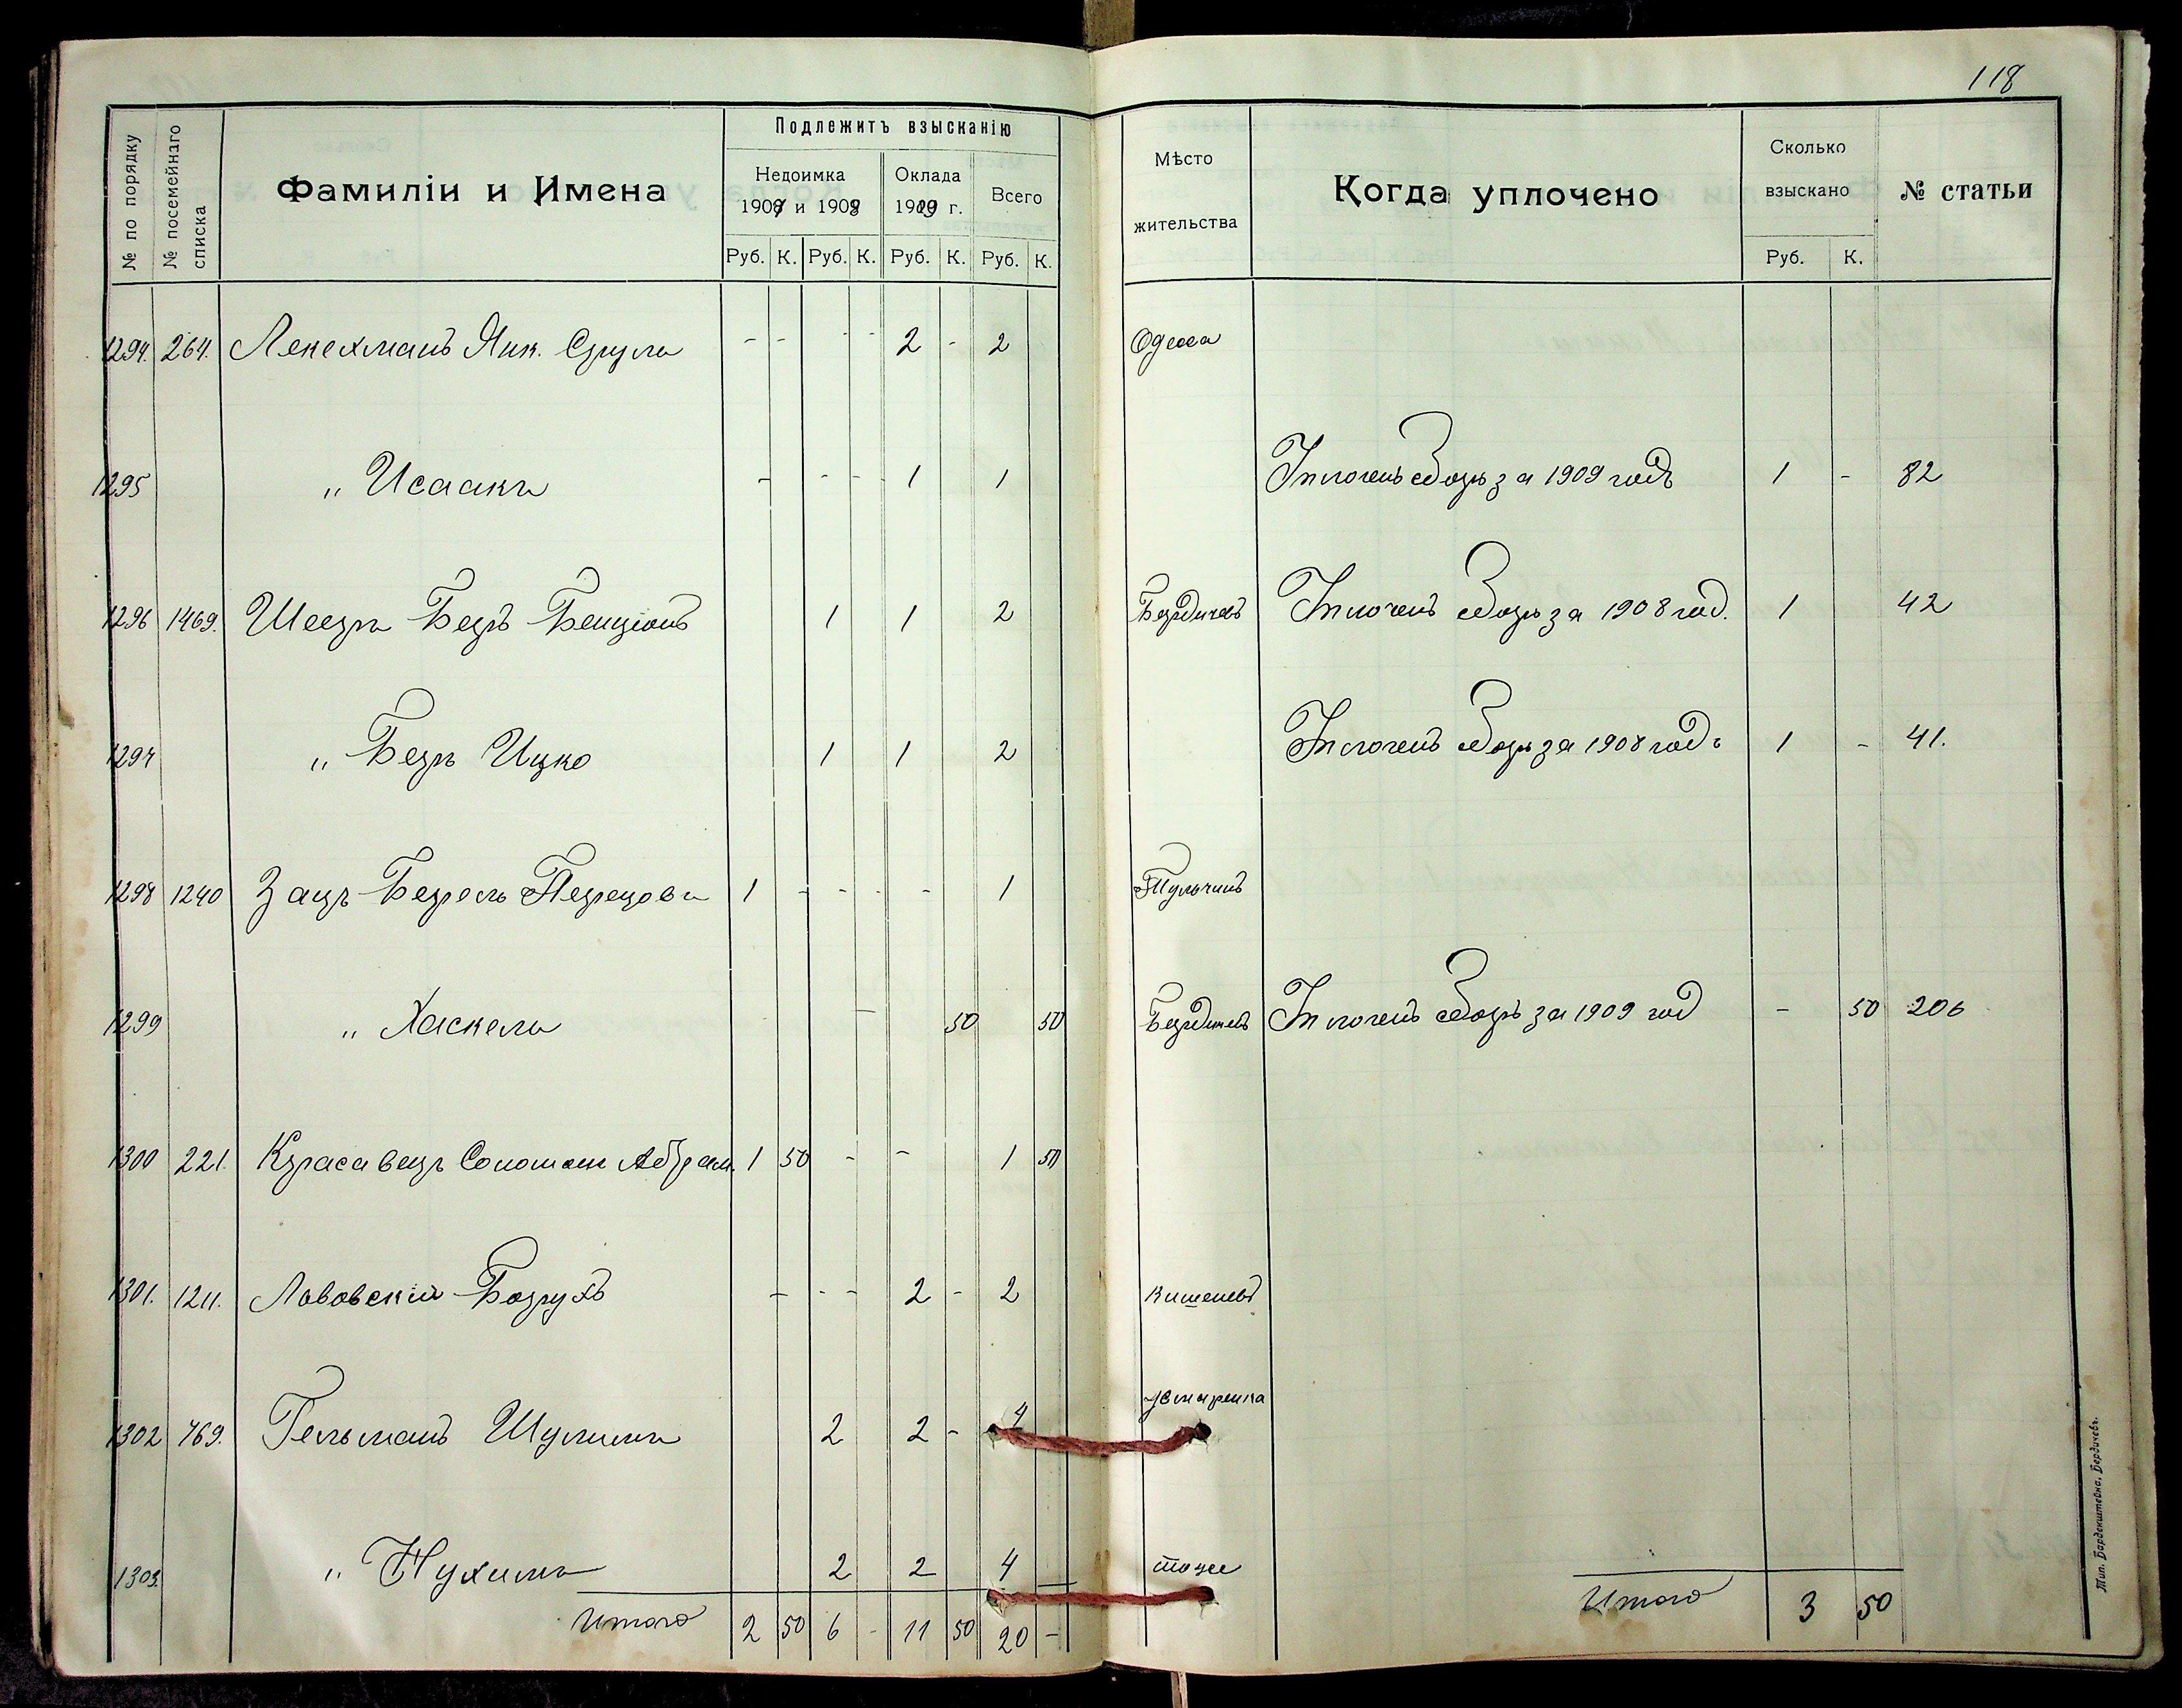 118
№ по порядку
№ посемейнаго списка
Фамиліи и Имена
Подлежитъ взысканію
Недоимка
1907 и 1908
Оклада
1909 г.
Всего
Руб. К. Руб. К. Руб. К. Руб. К.
Мѣсто
жительства
Когда уплочено
Сколько
взыскано
Руб. К.
№ статьи
1294. 264. Лекехманъ Янк. Сруль - - - - 2 - 2 Одесса
1295 „ Исаакъ - - - 1 1 Уплоченъ сборъ за 1909 годъ 1 - 82
1296 1469. Шееръ Беръ Бенціонъ 1 1 2 Бердичевъ Уплоченъ сборъ за 1908 год. 1 42
1297 „ Беръ Ицко 1 1 2 Уплоченъ сборъ за 1908 годъ 1 - 41.
1298 1240 Зацъ Берель Перецовъ 1 - - - - 1 Тульчинъ
1299 „ Хаскель - 50 50 Бердичевъ Уплоченъ сборъ за 1909 год - 50 206
1300 221. Красавецъ Соломон Абрам. 1 50 - - 1 50
1301. 1211. Львовскій Борухъ - - - 2 - 2 Кишеневъ
1302 769. Гельманъ Шулимъ 2 2 - 4
1303. „ Нухимъ 2 2 4 - тоже
Итого 2 50 6 - 11 50 20 -
Итого 3 50
Тип. Барденштейна, Бердичевъ.